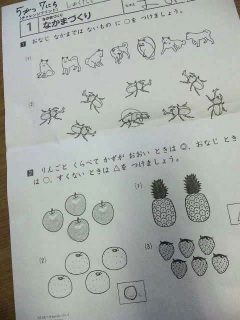 5がつ 7にち
1 なかまづくり
1 おなじ なかまでは ないもの に ○を つけましょう。
(1)
(2)
2 りんごと くらべて かずが おおい ときは ◎、おなじ とき
は ○、すくない ときは △を つけましょう。
(1)
(2)
(3)